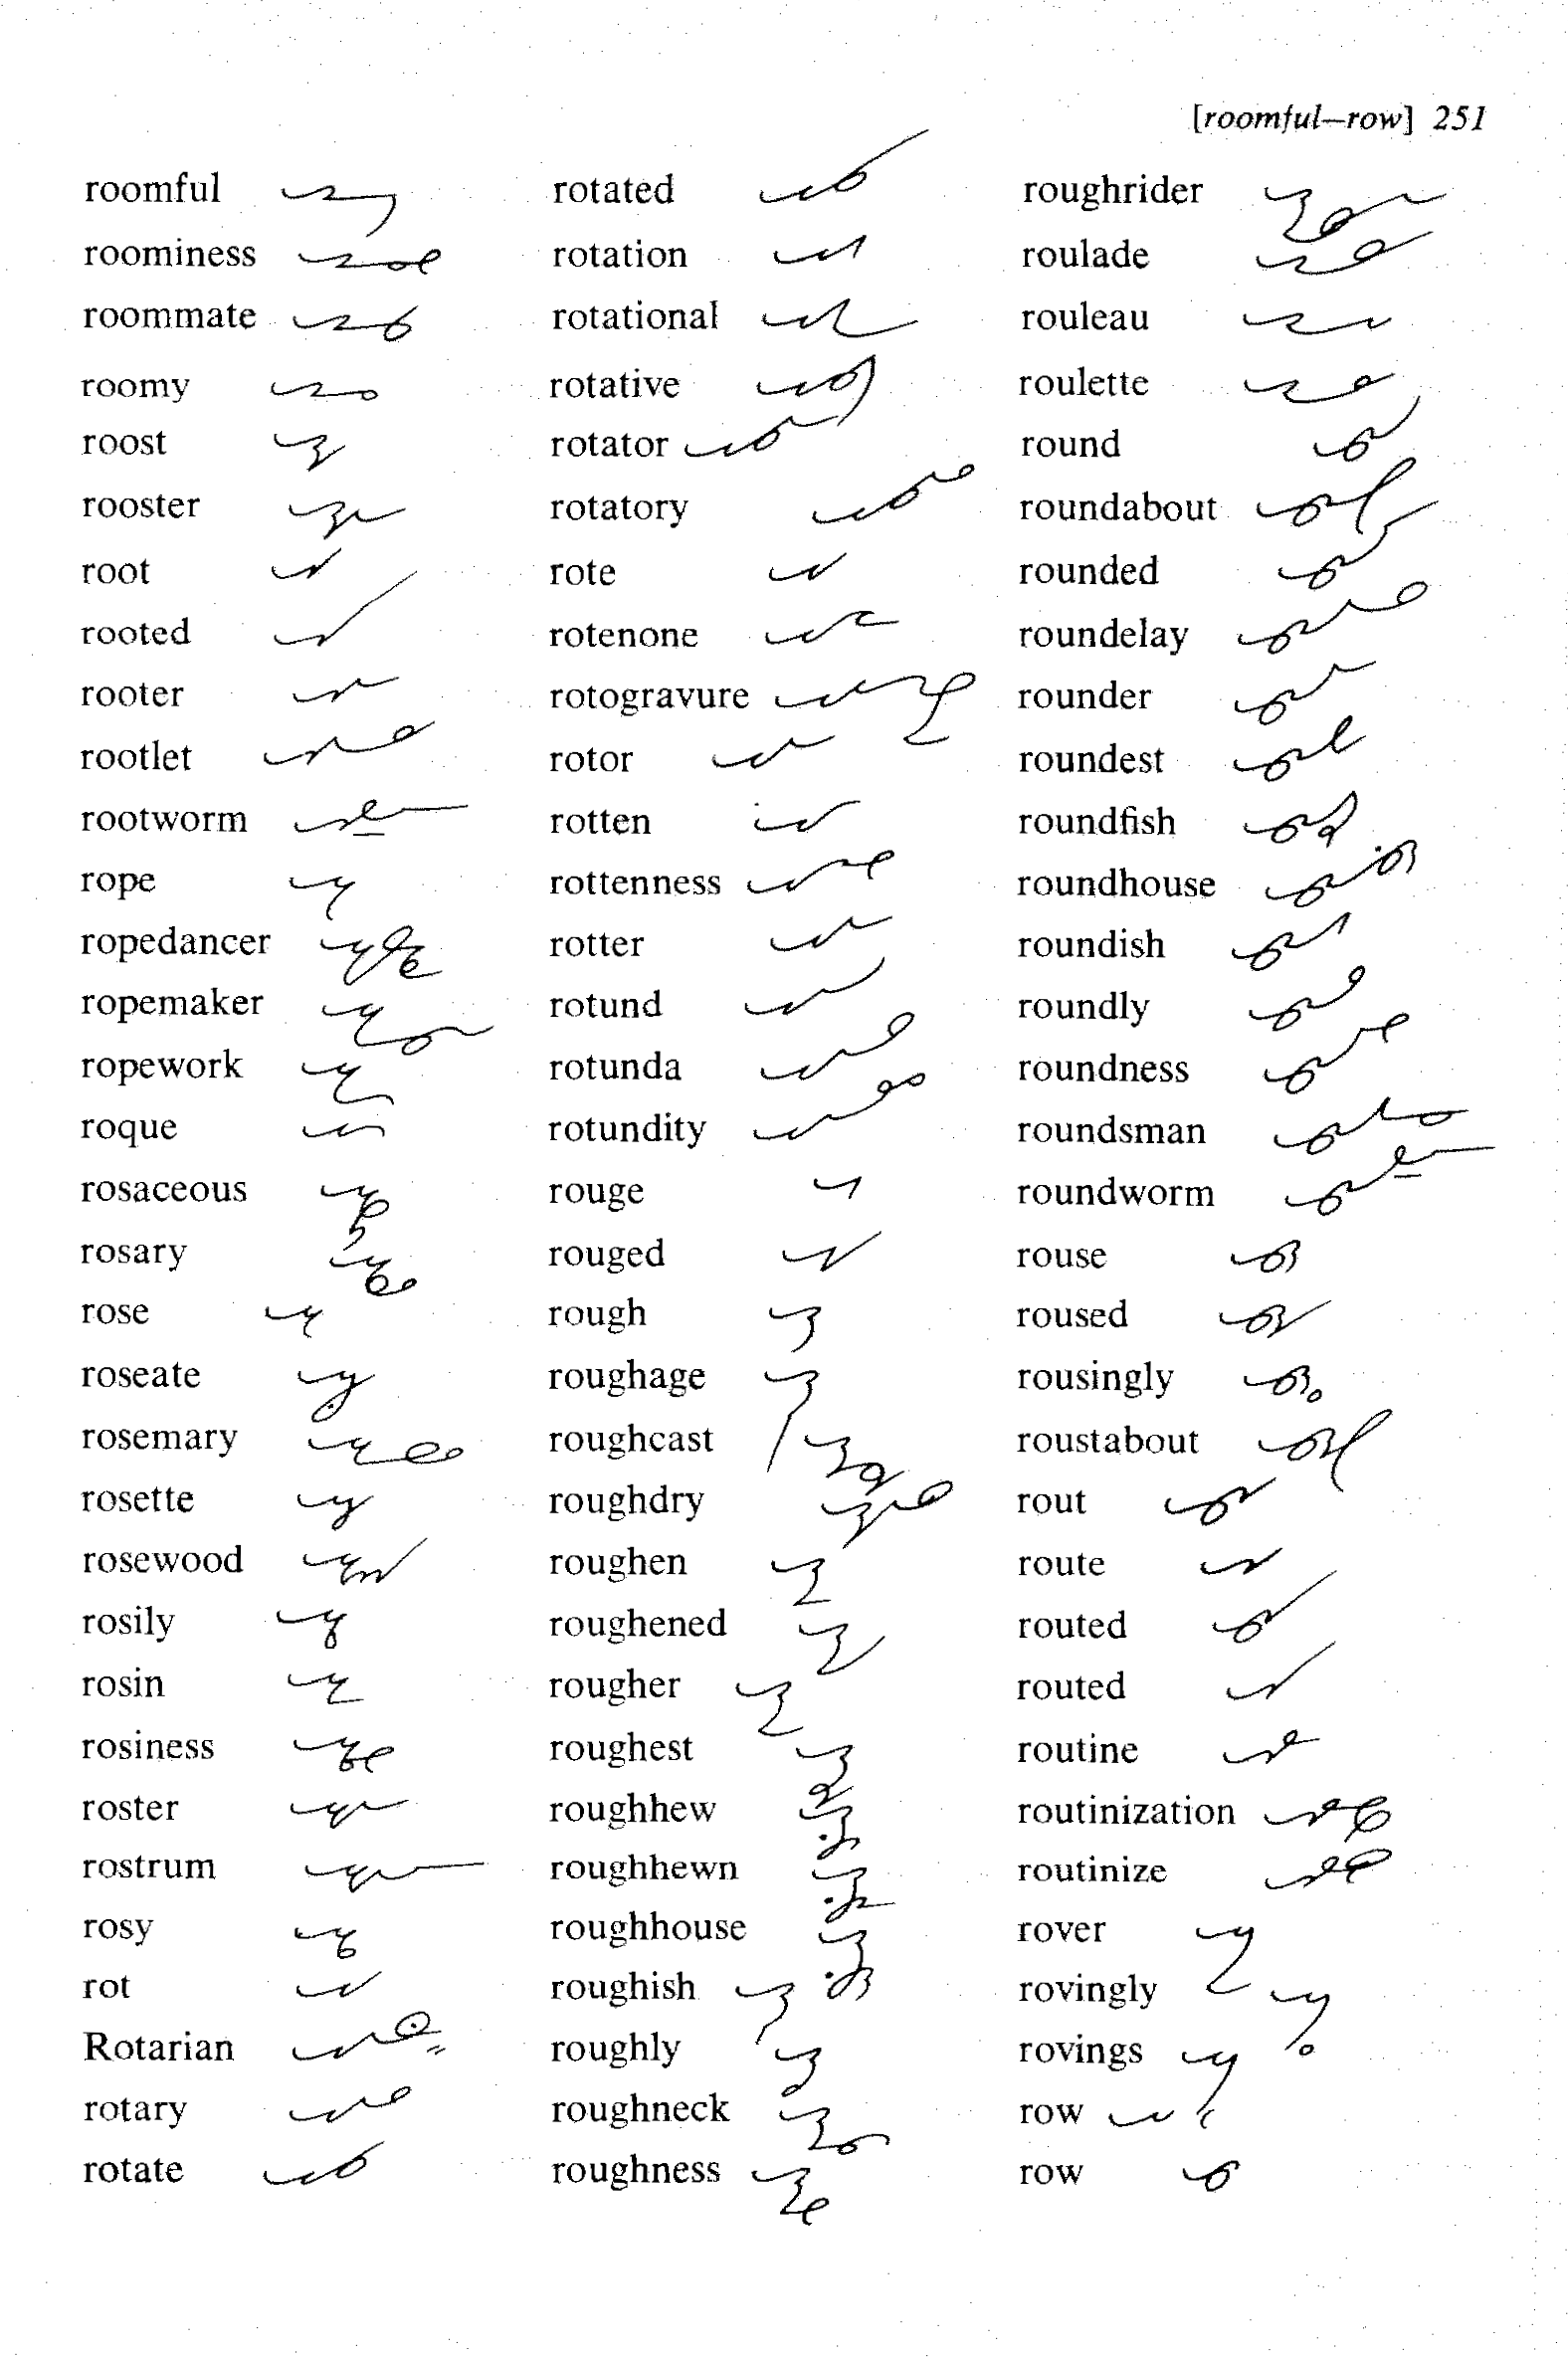 [roomful–row] 251
roomful
roominess
roommate
roomy
roost
rooster
root
rooted
rooter
rootlet
rootworm
rope
ropedancer
ropemaker
ropework
roque
rosaceous
rosary
rose
roseate
rosemary
rosette
rosewood
rosily
rosin
rosiness
roster
rostrum
rosy
rot
Rotarian
rotary
rotate
rotated
rotation
rotational
rotative
rotator
rotatory
rote
rotenone
rotogravure
rotor
rotten
rottenness
rotter
rotund
rotunda
rotundity
rouge
rouged
rough
roughage
roughcast
roughdry
roughen
roughened
rougher
roughest
roughhew
roughhewn
roughhouse
roughish
roughly
roughneck
roughness
roughrider
roulade
rouleau
roulette
round
roundabout
rounded
roundelay
rounder
roundest
roundfish
roundhouse
roundish
roundly
roundness
roundsman
roundworm
rouse
roused
rousingly
roustabout
rout
route
routed
routed
routine
routinization
routinize
rover
rovingly
rovings
row
row